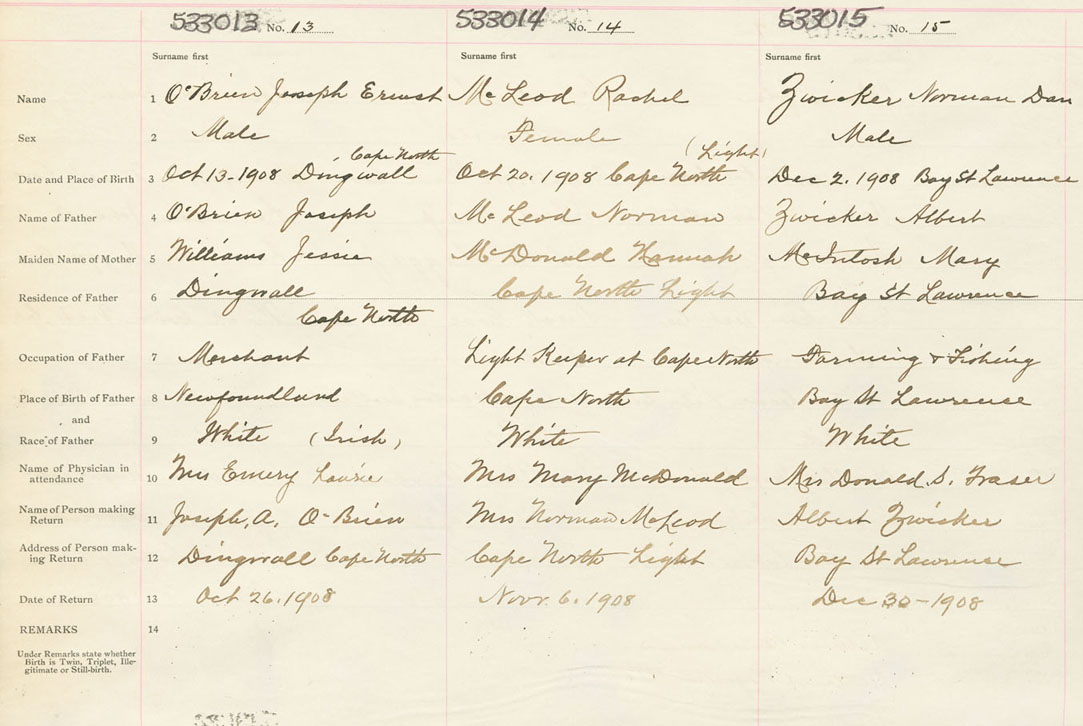 533013 No. 13 533014 No. 14 533015 No. 15
Surname first Surname first Surname first
Name 1 O'Brien Joseph Ernest McLeod Rachel Zwicker Norman Dan
Sex 2 Male Female Male
Cape North (Light)
Date and Place of Birth 3 Oct 13-1908 Dingwall Oct 20. 1908 Cape North Dec 2. 1908 Bay St Lawrence
Name of Father 4 O'Brien Joseph McLeod Norman Zwicker Albert
Maiden Name of Mother 5 Williams Jessie McDonald Hannah McIntosh Mary
Residence of Father 6 Dingwall Cape North Light Bay St Lawrence
Cape North
Occupation of Father 7 Merchant Light Keeper at Cape North Farming & Fishing
Place of Birth of Father 8 Newfoundland Cape North Bay St Lawrence
and
Race of Father 9 White (Irish) White White
Name of Physician in
attendance 10 Mrs Emery Mrs Mary McDonald Mrs Donald S. Fraser
Name of Person making
Return 11 Joseph. A. O'Brien Mrs Norman McLeod Albert Zwicker
Address of Person mak-
ing Return 12 Dingwall Cape North Cape North Light Bay St Lawrence
Date of Return 13 Oct 26. 1908 Novr. 6. 1908 Dec 30-1908
REMARKS 14
Under Remarks state whether
Birth is Twin, Triplet, Ille-
gitimate or Still-birth.